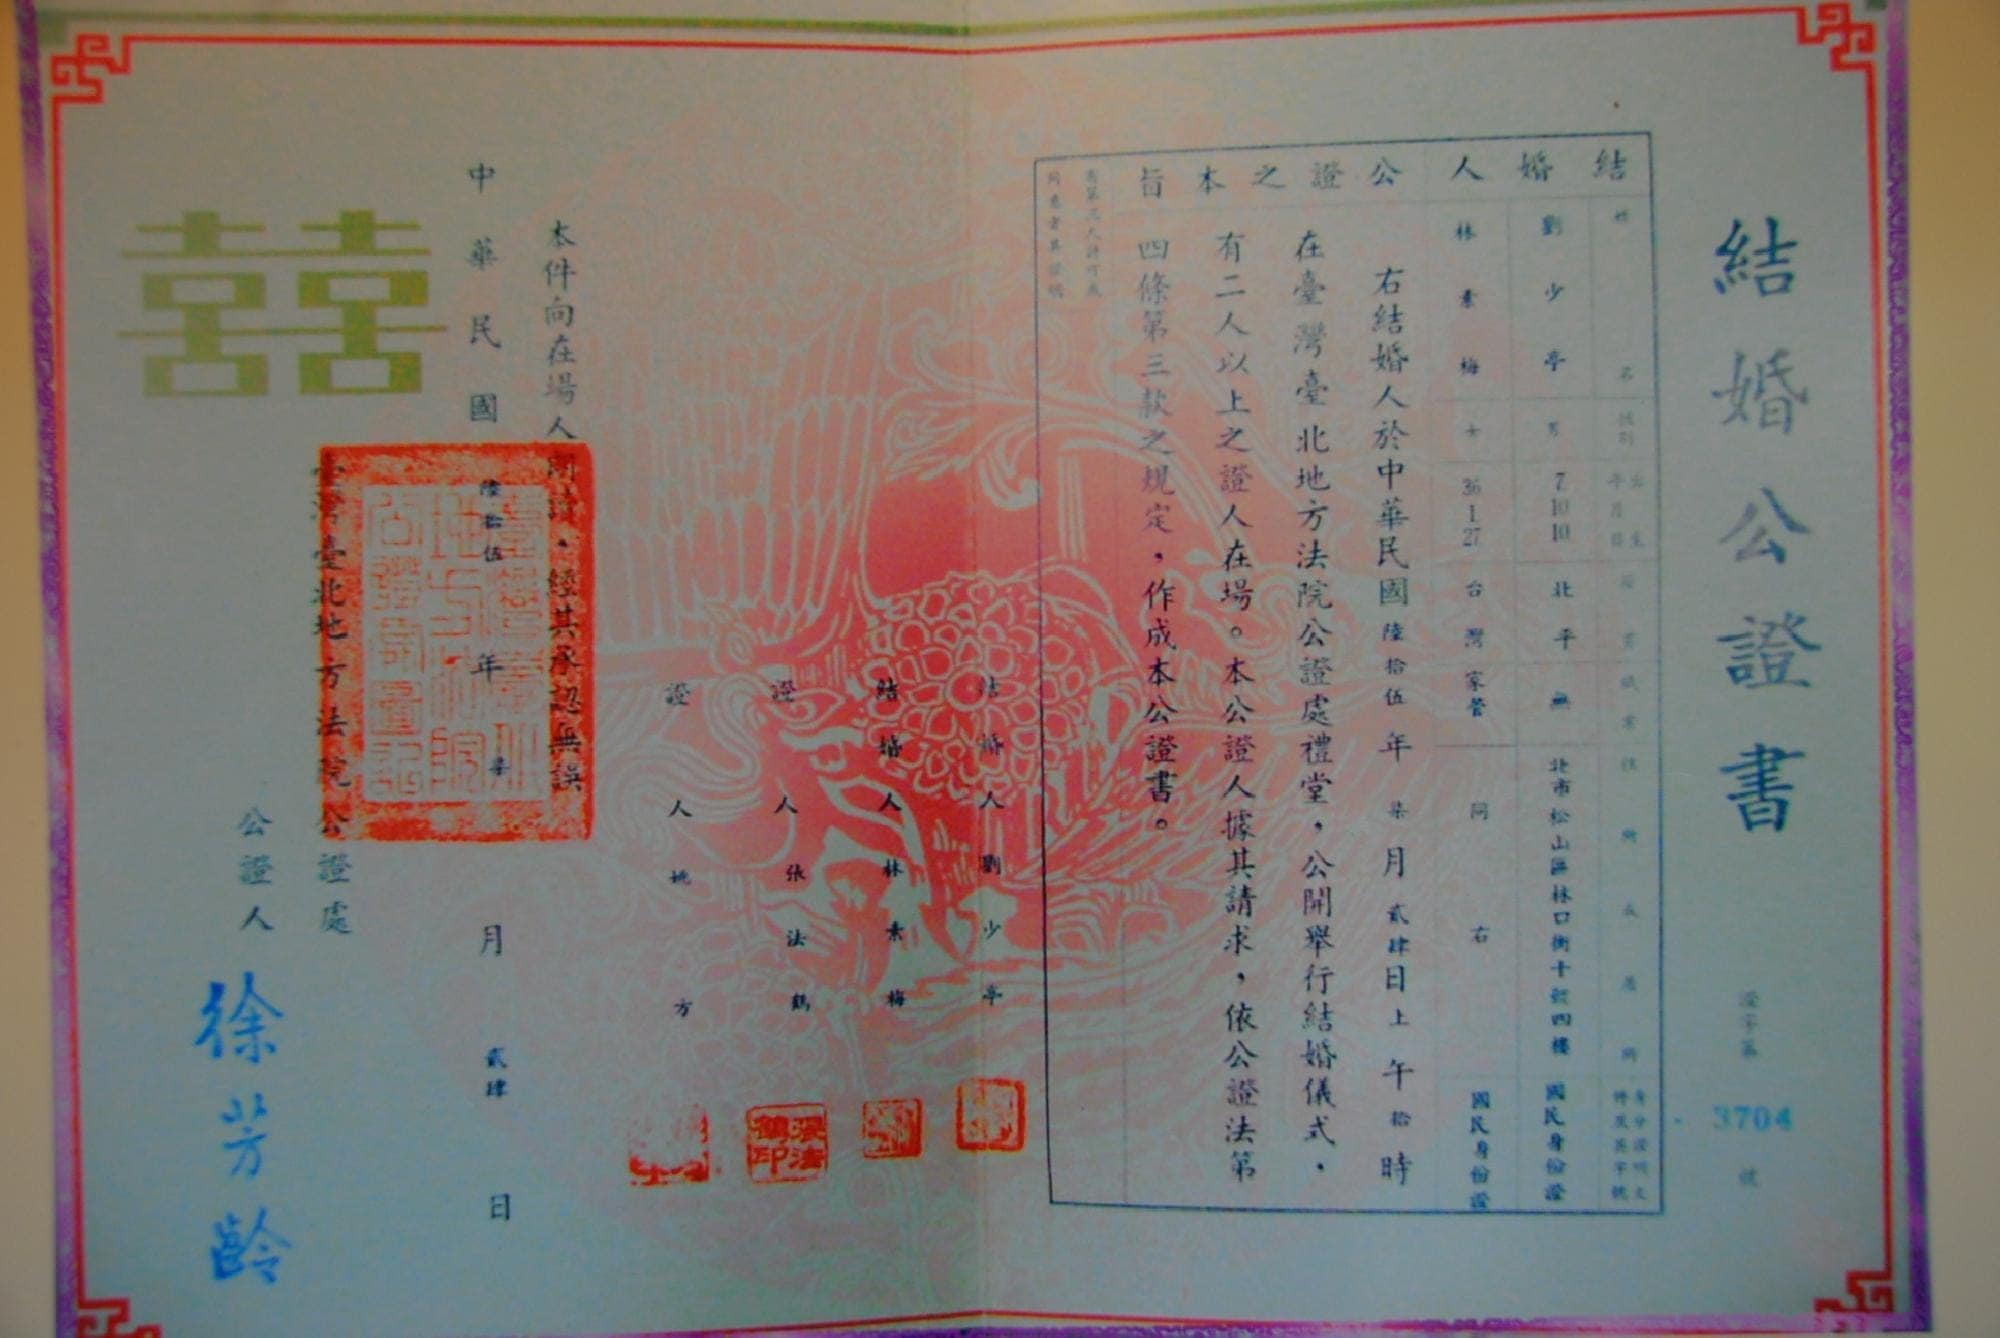 結婚公證書
證字第 3704 號
結婚人
姓名
性別
出生年月日
籍貫
職業
住所或居所
劉少亭
男
7 10 10
北平
無
北市松山區林口街十號四樓
國民身份證
林素梅
女
36 1 27
台灣
家管
同右
國民身份證
公證之本旨
右結婚人於中華民國陸拾伍年柒月貳肆日上午拾時
在臺灣臺北地方法院公證處禮堂，公開舉行結婚儀式，
有二人以上之證人在場。本公證人據其請求，依公證法第
四條第三款之規定，作成本公證書。
結婚人 劉少亭
結婚人 林素梅
證人 張法鶴
證人 姚方
本件向在場人朗讀，經其承認無誤
中華民國陸拾伍年柒月貳肆日
臺灣臺北地方法院公證處
公證人 徐芳齡
囍